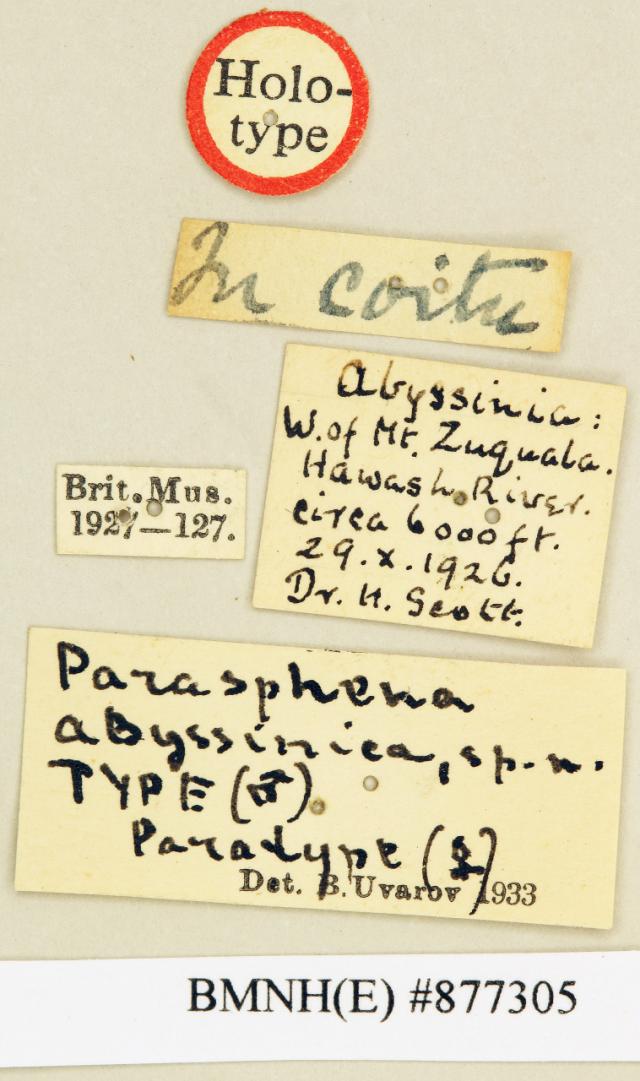 Holo-
type
In coitu
Abyssinia:
W. of Mt. Zuquala.
Hawash River.
circa 6000 ft.
29.X.1926.
Dr. H. Scott.
Brit. Mus.
1927—127.
Parasphena
abyssinica, sp. n.
TYPE (♂)
Paratype (♀)
Det. B. Uvarov 1933
BMNH(E) #877305